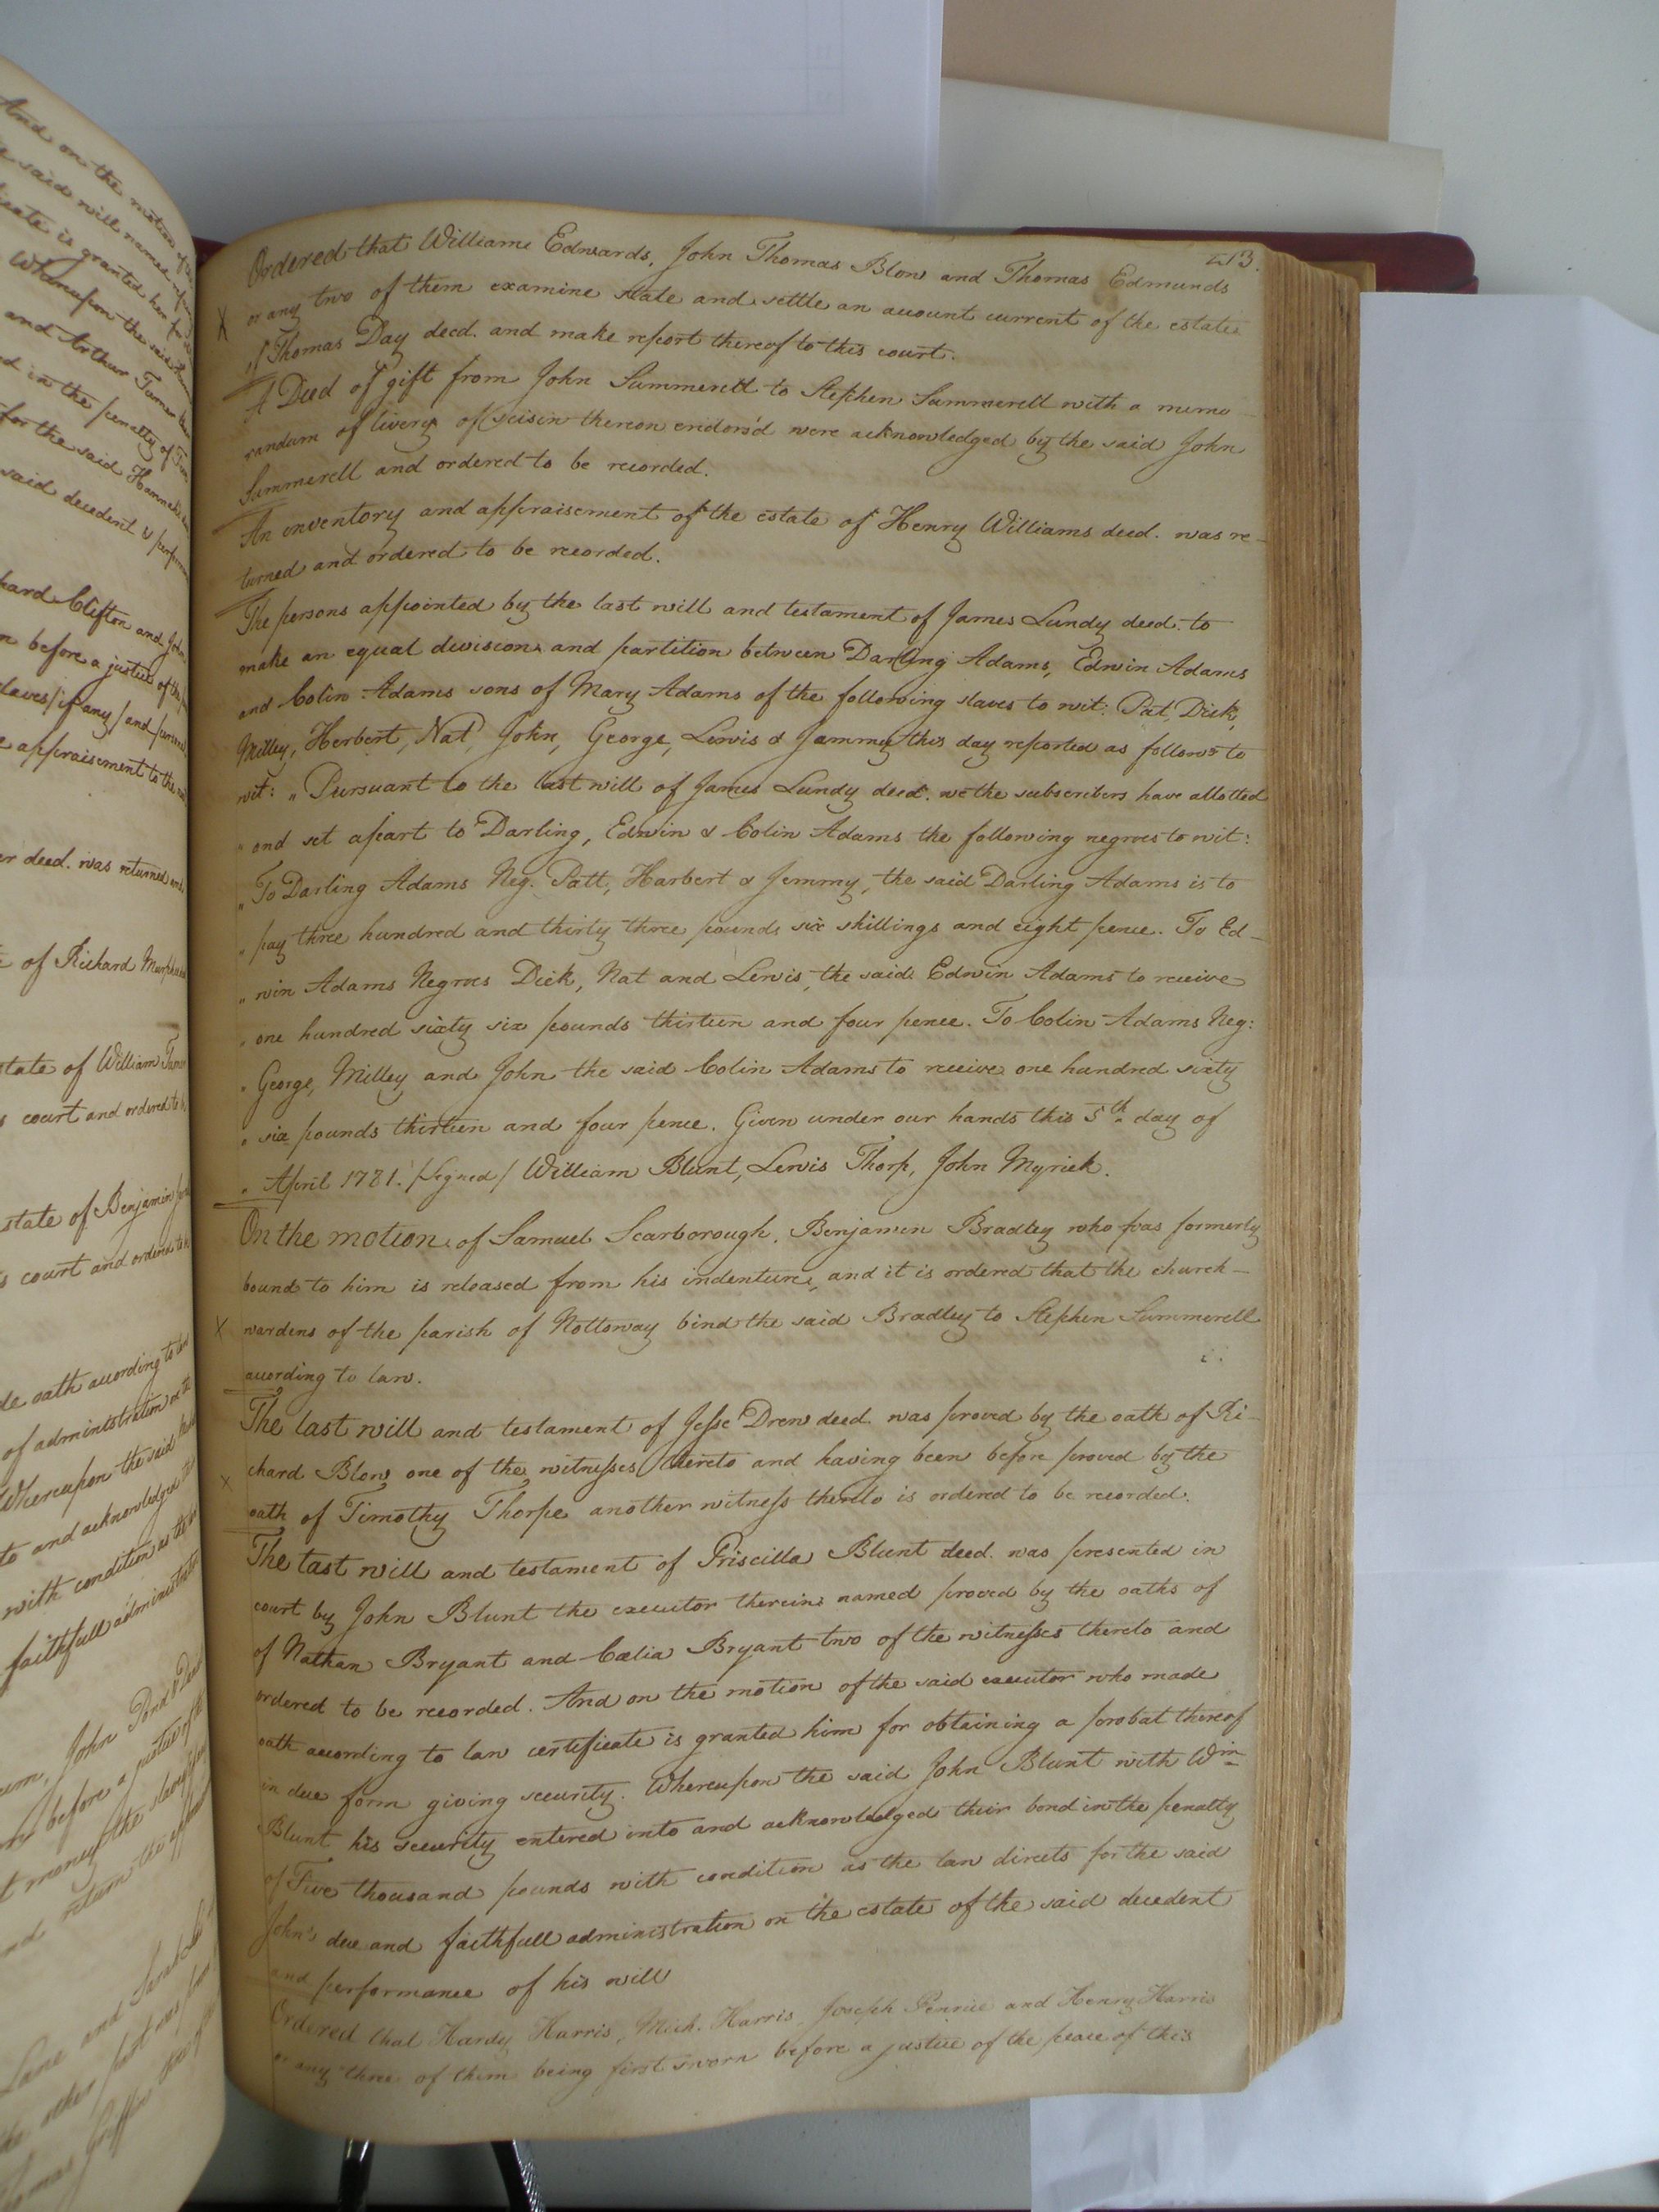 And on the motion of
said will named
is granted her for
Whereupon the said
and Arthur Turner
in the penalty of
for the said Hannah
said decedent & perform
Clifton and John
before a justice of the
slaves /if any/ and personal
appraisement to the
deed. was returned and
of Richard
state of William
court and ordered to
state of Benjamin
court and ordered to
oath according to law
of administration of the
Whereupon the said
to and acknowledged
with condition as the law
faithfull administration
John Pond
before a justice of the
money the slaves
and return the
Lane and
the other part was
Thomas Griffin
213.
Ordered that William Edwards, John Thomas Blow and Thomas Edmunds
or any two of them examine state and settle an account current of the estate
of Thomas Day decd. and make report thereof to this court.
A Deed of gift from John Summerell to Stephen Summerell with a memo-
randum of livery of seisin thereon endors'd were acknowledged by the said John
Summerell and ordered to be recorded.
An inventory and appraisement of the estate of Henry Williams decd. was re-
turned and ordered to be recorded.
The persons appointed by the last will and testament of James Lundy decd. to
make an equal division and partition between Darling Adams, Edwin Adams
and Colin Adams sons of Mary Adams of the following slaves to wit: Pat, Dick,
Milley, Herbert, Nat, John, George, Lewis & Jammy this day reported as follows to
wit: " Pursuant to the last will of James Lundy decd. we the subscribers have allotted
" and set apart to Darling, Edwin & Colin Adams the following negroes to wit:
" To Darling Adams Neg. Patt, Harbert & Jemmy, the said Darling Adams is to
" pay three hundred and thirty three pounds six shillings and eight pence. To Ed-
" win Adams Negroes Dick, Nat and Lewis, the said Edwin Adams to receive
" one hundred sixty six pounds thirteen and four pence. To Colin Adams Neg:
" George, Milley and John the said Colin Adams to receive one hundred sixty
" six pounds thirteen and four pence. Given under our hands this 5th day of
" April 1781. /Signed/ William Blunt, Lewis Thorp, John Myrick.
On the motion of Samuel Scarborough, Benjamin Bradley who was formerly
bound to him is released from his indenture, and it is ordered that the church-
X wardens of the parish of Nottoway bind the said Bradley to Stephen Summerell
according to law.
The last will and testament of Jesse Drew decd. was proved by the oath of Ri-
chard Blow one of the witnesses thereto and having been before proved by the
oath of Timothy Thorpe another witness thereto is ordered to be recorded.
The last will and testament of Priscilla Blunt decd. was presented in
court by John Blunt the executor therein named proved by the oaths of
of Nathan Bryant and Cælia Bryant two of the witnesses thereto and
ordered to be recorded. And on the motion of the said executor who made
oath according to law certificate is granted him for obtaining a probat thereof
in due form giving security. Whereupon the said John Blunt with Wm
Blunt his security entered into and acknowledged their bond in the penalty
of Five thousand pounds with condition as the law directs for the said
John's due and faithfull administration on the estate of the said decedent
and performance of his will
Ordered that Hardy Harris, Mich. Harris, Joseph Pennie and Henry Harris
or any three of them being first sworn before a justice of the peace of this